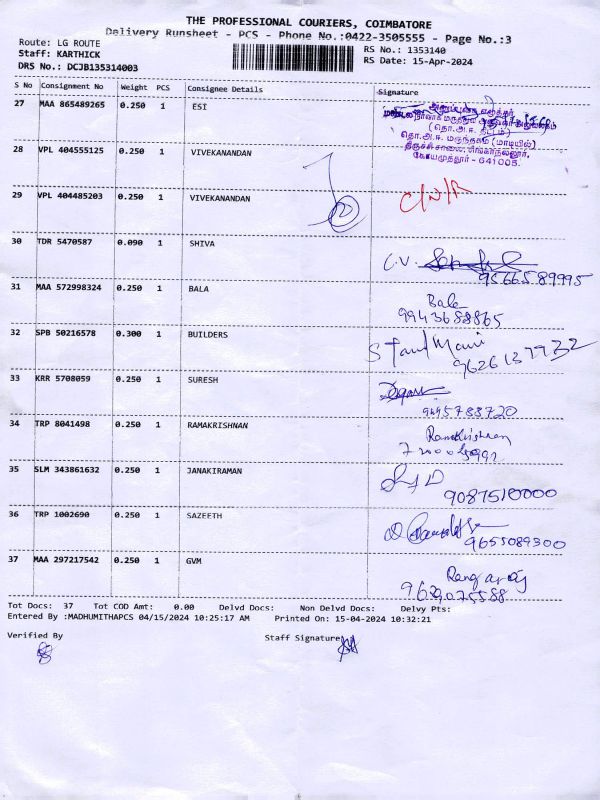 THE PROFESSIONAL COURIERS, COIMBATORE
Delivery Runsheet - PCS - Phone No.:0422-3505555 - Page No.:3
Route: LG ROUTE
RS No.: 1353140
Staff: KARTHICK
RS Date: 15-Apr-2024
DRS No.: DCJB135314003
S No Consignment No Weight PCS Consignee Details Signature
27 MAA 865489265 0.250 1 ESI
(தொ.அ.ஈ. திட்டம்)
தொ.அ.ஈ. மருந்தகம் (மாடியில்)
திருச்சி சாலை, சிங்காநல்லூர்,
கோயமுத்தூர் - 641005.
28 VPL 404555125 0.250 1 VIVEKANANDAN
29 VPL 404485203 0.250 1 VIVEKANANDAN C/N/R
30 TDR 5470587 0.090 1 SHIVA C.V.
9566589995
31 MAA 572998324 0.250 1 BALA Bala
9943688865
32 SPB 50216578 0.300 1 BUILDERS
9626137932
33 KRR 5708059 0.250 1 SURESH
9495783720
34 TRP 8041498 0.250 1 RAMAKRISHNAN Ramakrishnan
35 SLM 343861632 0.250 1 JANAKIRAMAN
9087510000
36 TRP 1002690 0.250 1 SAZEETH
9655089300
37 MAA 297217542 0.250 1 GVM Rangaraj
9629075588
Tot Docs: 37 Tot COD Amt: 0.00 Delvd Docs: Non Delvd Docs: Delvy Pts:
Entered By :MADHUMITHAPCS 04/15/2024 10:25:17 AM Printed On: 15-04-2024 10:32:21
Verified By Staff Signature